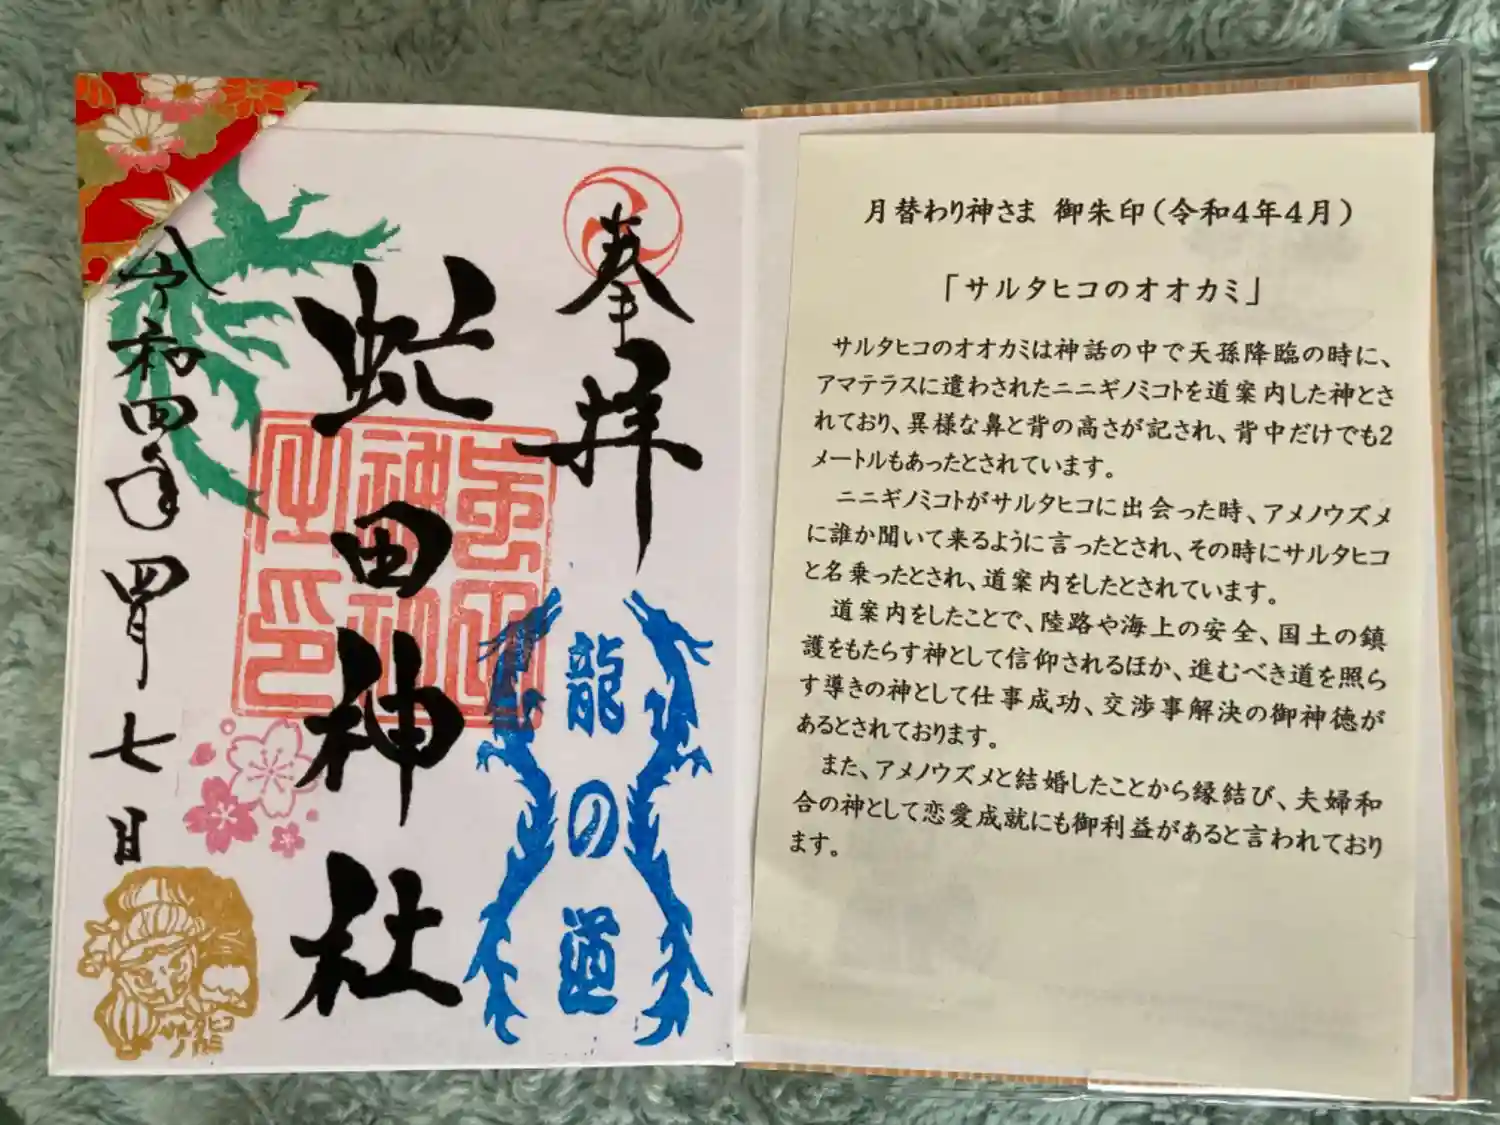 奉拝
虻田神社
令和四年四月七日
龍の道
サルタヒコ
ノカミ
月替わり神さま 御朱印(令和4年4月)
「サルタヒコのオオカミ」
サルタヒコのオオカミは神話の中で天孫降臨の時に、
アマテラスに遣わされたニニギノミコトを道案内した神とさ
れており、異様な鼻と背の高さが記され、背中だけでも2
メートルもあったとされています。
ニニギノミコトがサルタヒコに出会った時、アメノウズメ
に誰か聞いて来るように言ったとされ、その時にサルタヒコ
と名乗ったとされ、道案内をしたとされています。
道案内をしたことで、陸路や海上の安全、国土の鎮
護をもたらす神として信仰されるほか、進むべき道を照ら
す導きの神として仕事成功、交渉事解決の御神徳が
あるとされております。
また、アメノウズメと結婚したことから縁結び、夫婦和
合の神として恋愛成就にも御利益があると言われており
ます。